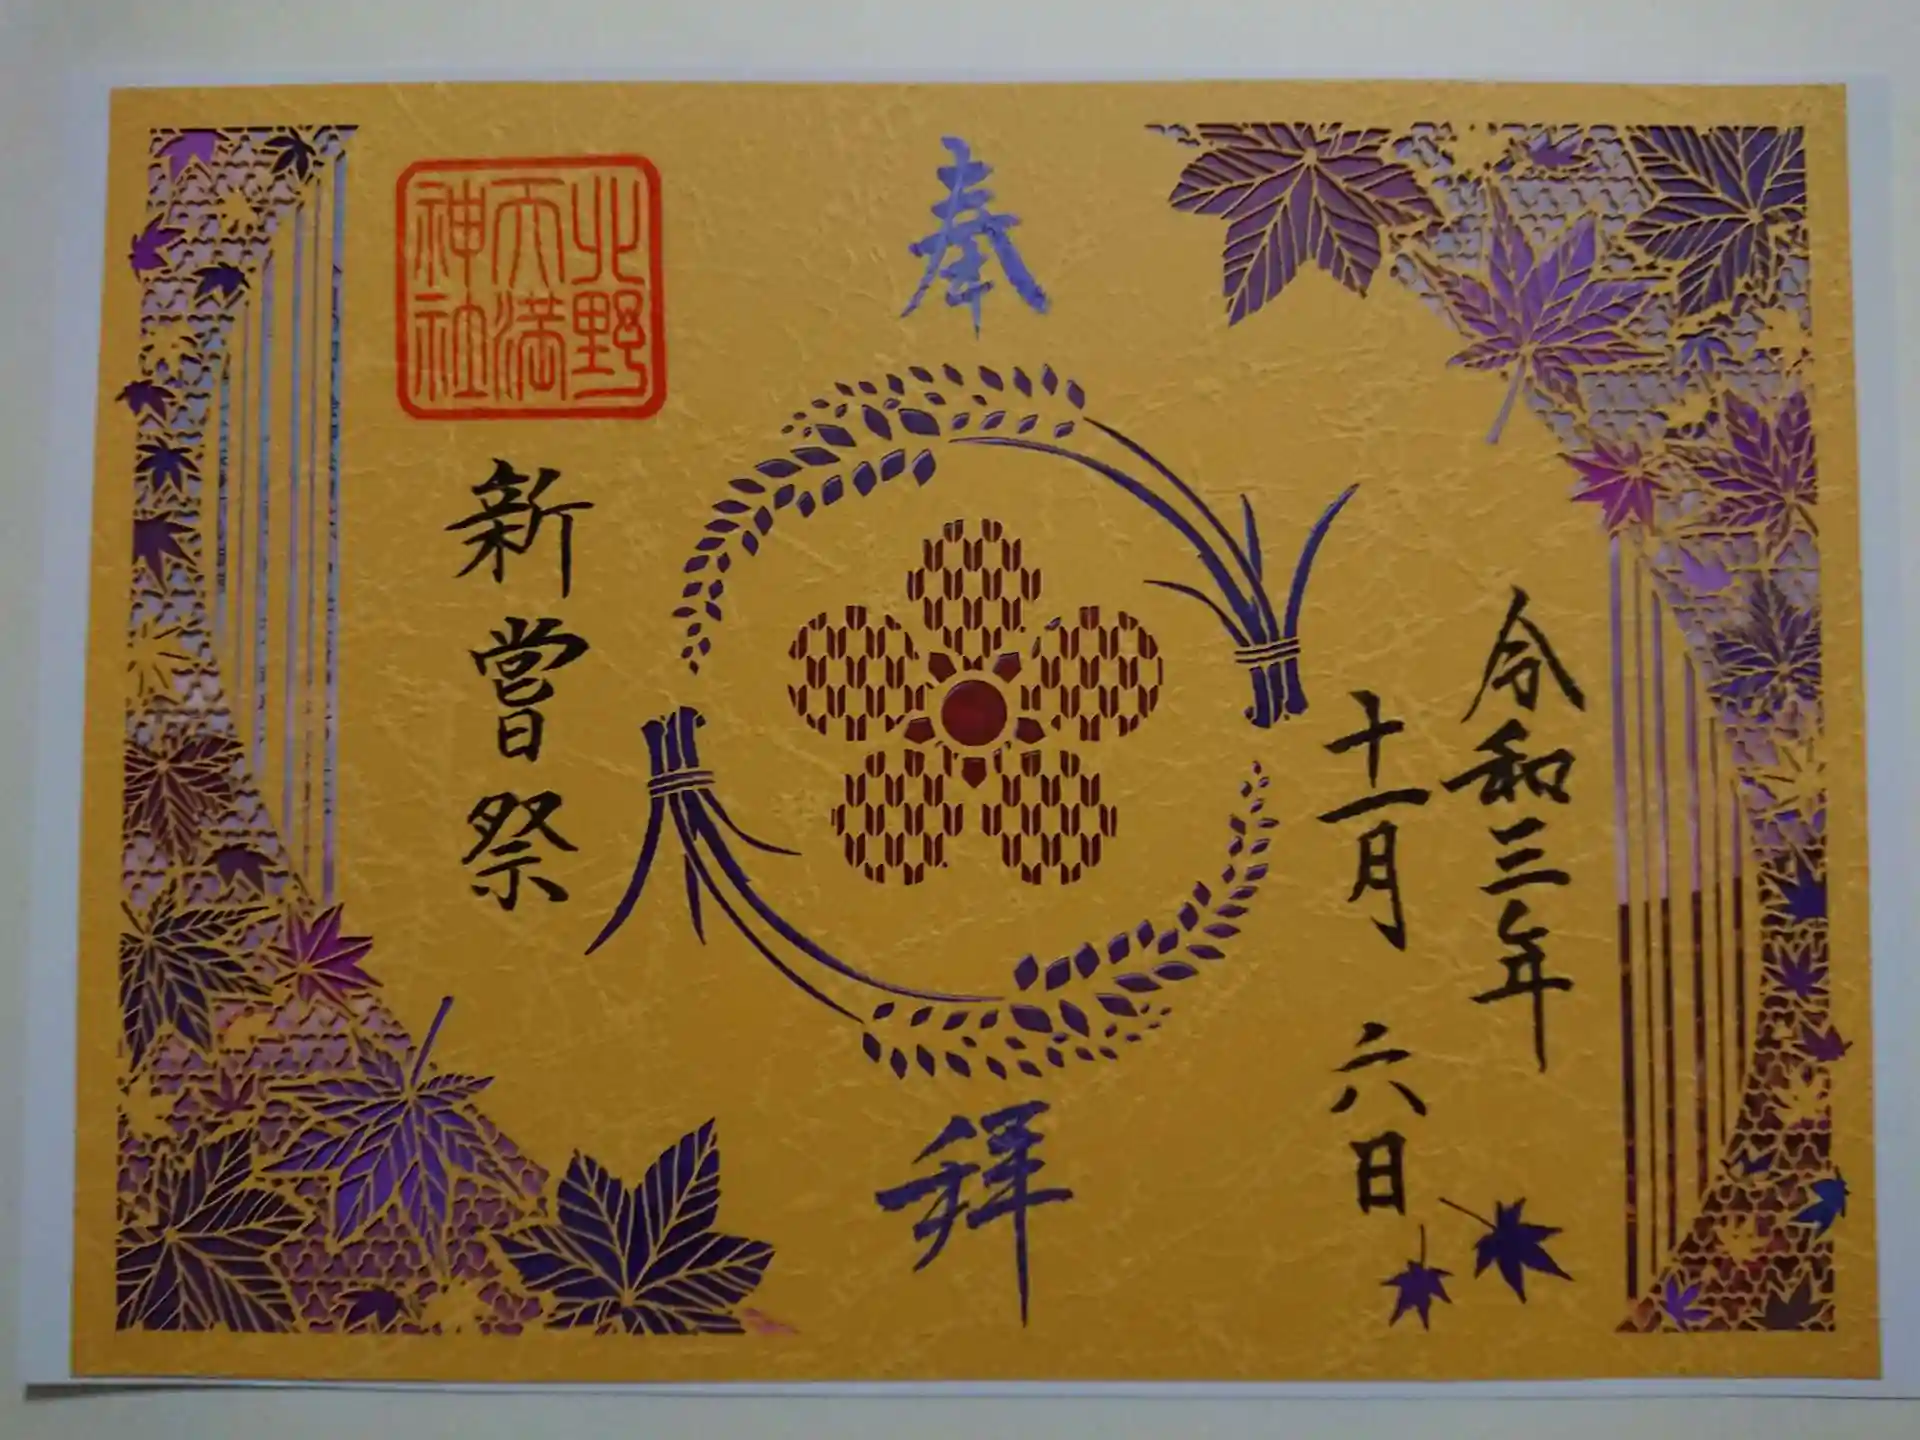 奉拝
令和三年
十一月六日
新嘗祭
北野
天満
神社